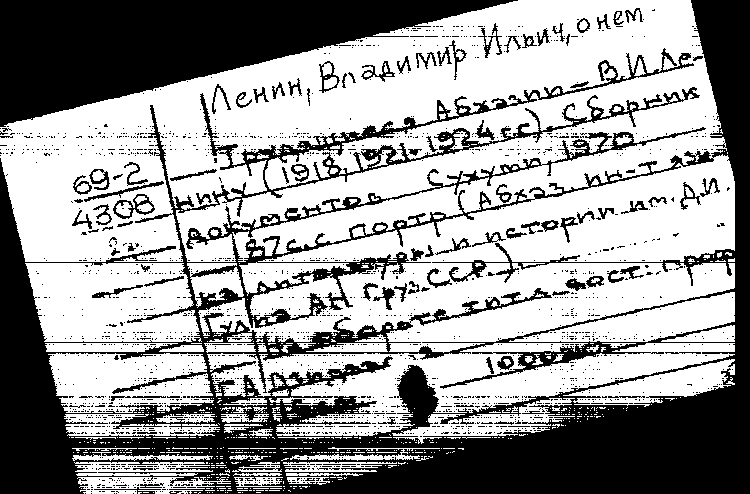 Ленин, Владимир Ильич, о нем.
Трудящиеся Абхазии – В.И. Ле-
69-2
4308
нину (1918, 1921-1924 гг.). Сборник
2 э.
документов Сухуми, 1970.
87 с. с портр (Абхаз. ин-т язы-
ка, литературы и истории им. Д.И.
Гулиа АН Груз.ССР.)
На обороте тит. л. сост.:
ГА
1000 экз.